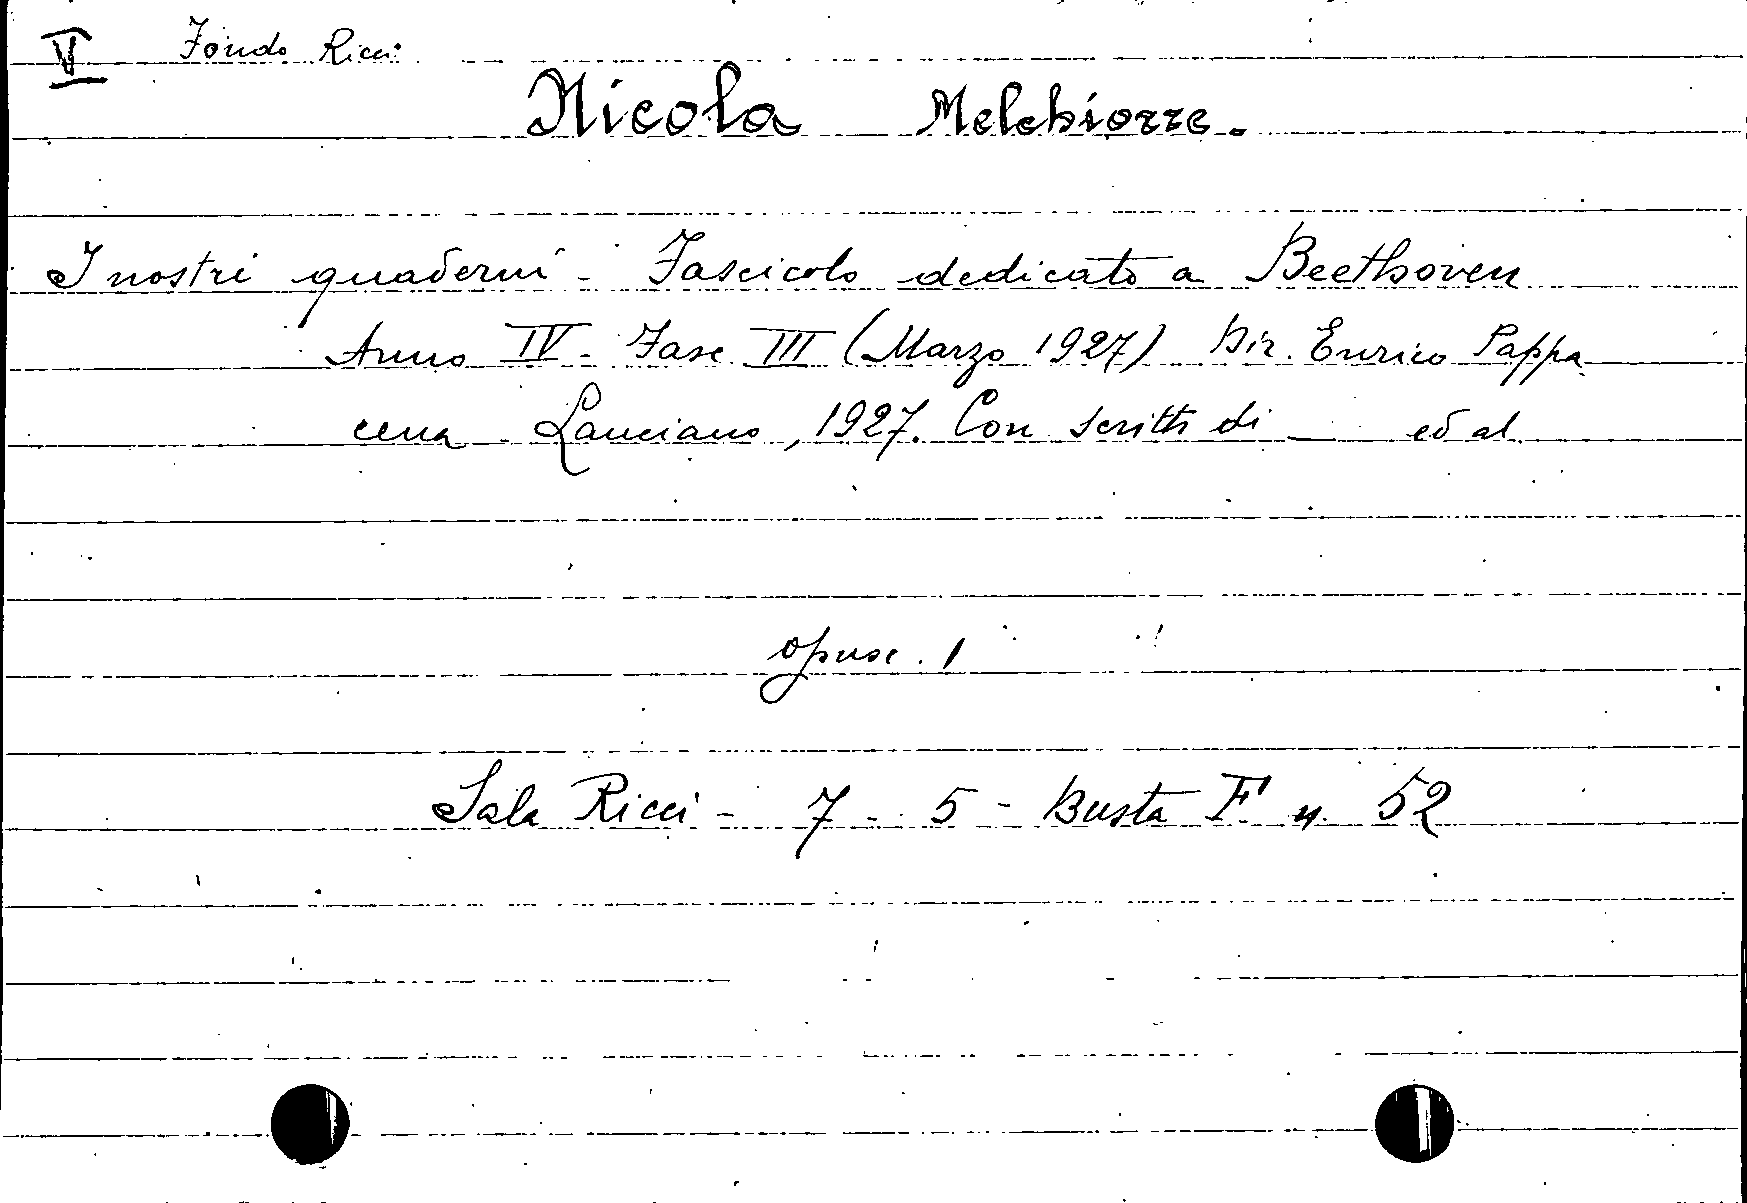 V Fondo Ricci
Nicola Melchiorre.
I nostri quaderni - Fascicolo dedicato a Beethoven
Anno IV - Fasc. III (Marzo 1927) Dir. Enrico Pappa
cena - Lanciano, 1927. Con scritti di — ed al.
opusc. 1
Sala Ricci - 7 - 5 - Busta F n. 52